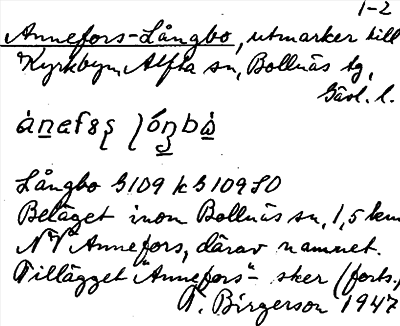 1-2
Annefors-Långbo, utmarker till
Kyrkbyn, Alfta sn, Bollnäs tg,
Gävl. l.
Långbo G109 k G109 SO
Beläget inom Bollnäs sn, 1,5 km
NV Annefors, därav namnet.
Tillägget "Annefors"- sker (forts.)
T. Birgerson 1947